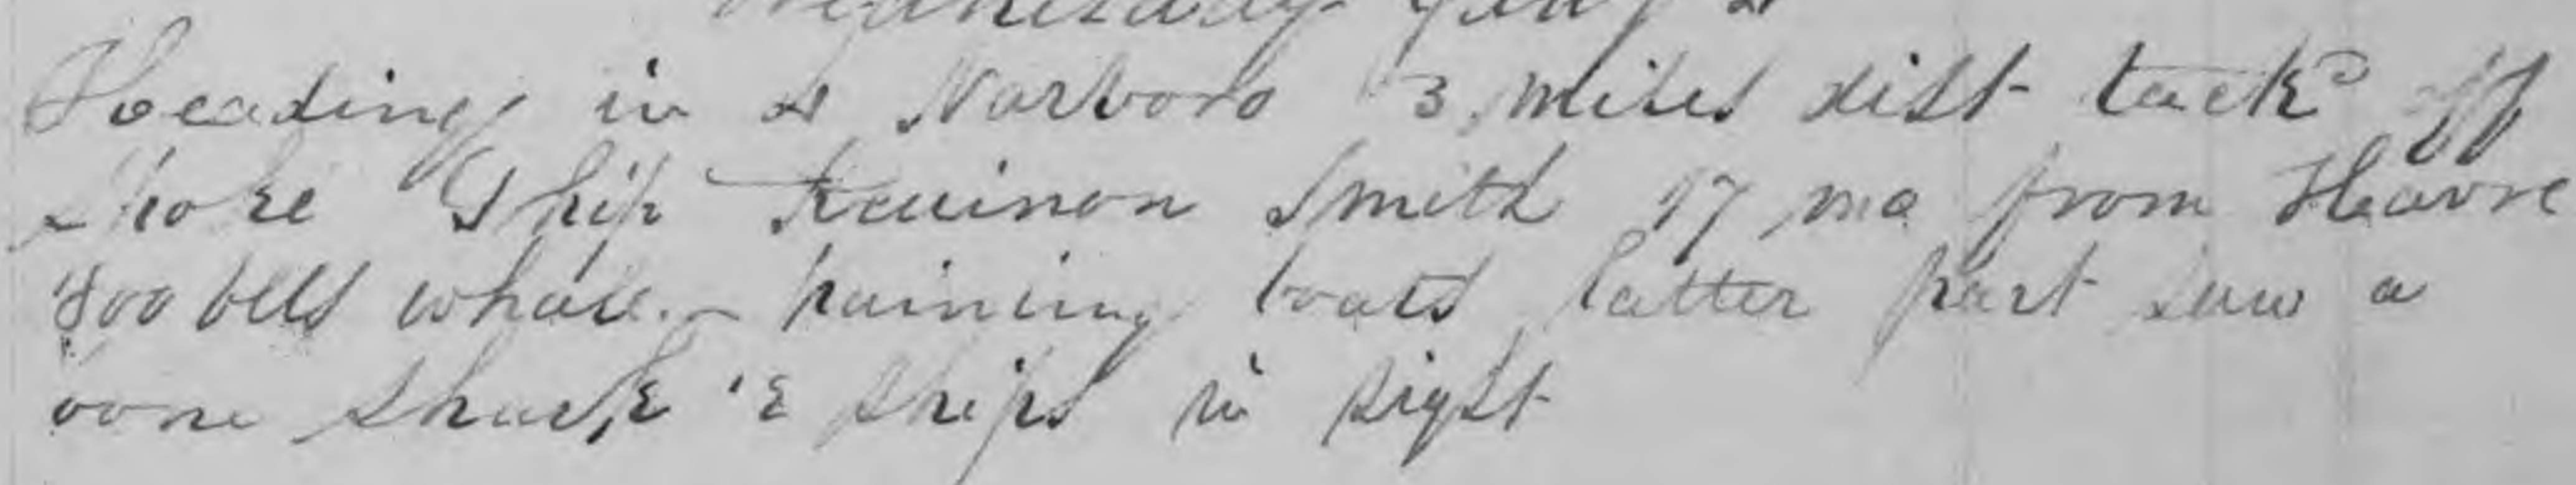 Wednesday Jan
Heading in Narboro 3 miles dist tackd off
shore Ship Smith 17 mo from Havre
800 bbls whale. - paining boats latter part saw a
bone shark ships in sight